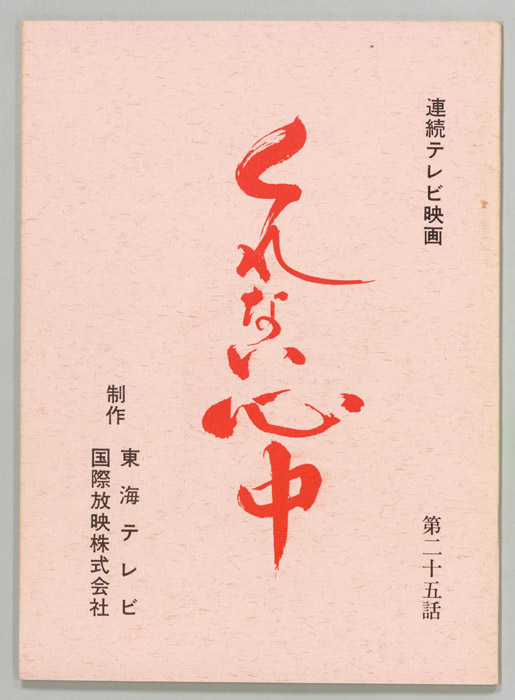 連続テレビ映画
くれない心中
第二十五話
制作
東海テレビ
国際放映株式会社